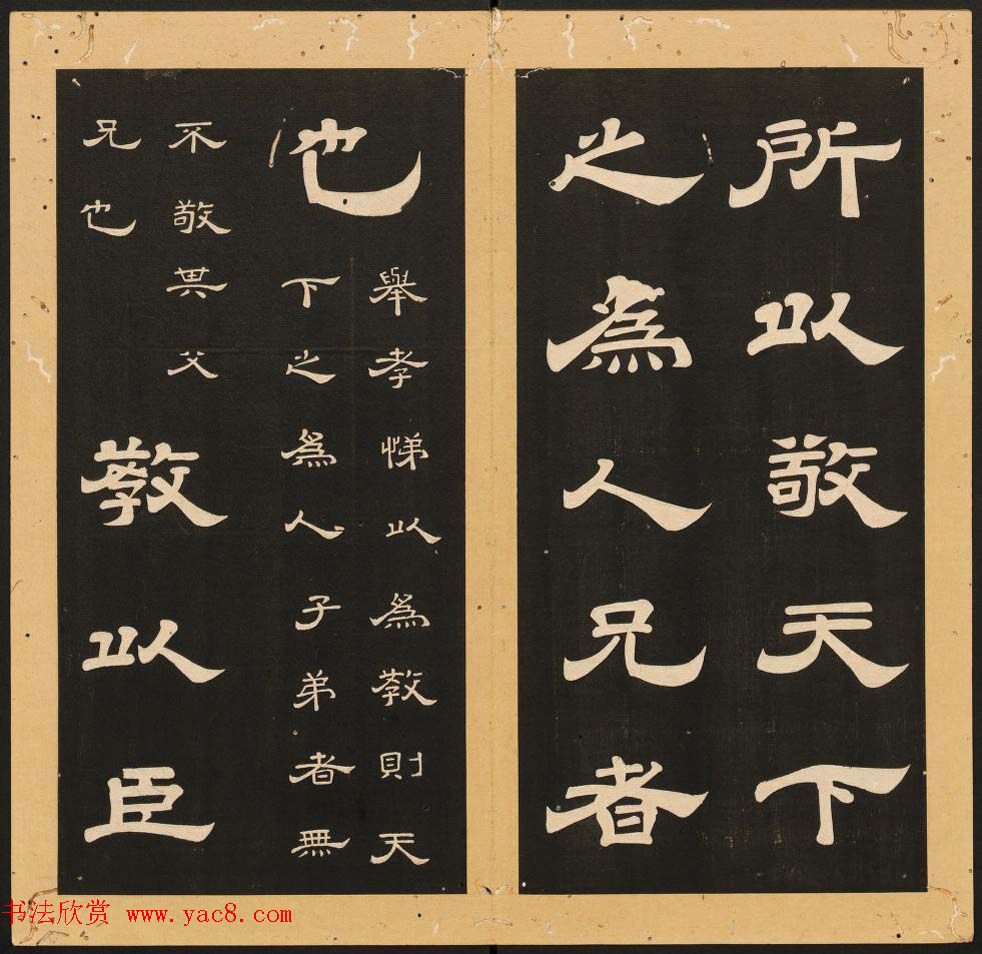 所以敬天下
之為人兄者
也
舉孝悌以為教則天
下之為人子弟者無
不敬其父
兄也
教以臣
书法欣赏 www.yac8.com